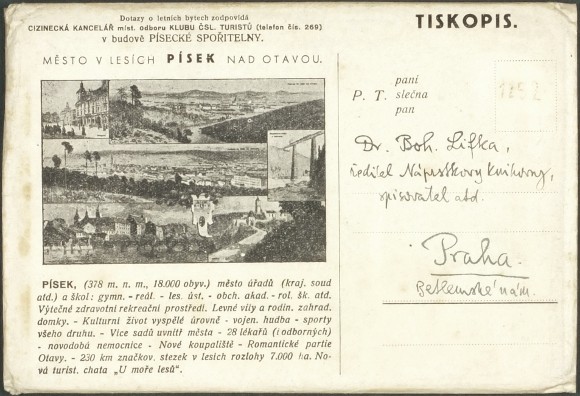 Dotazy o letních bytech zodpovídá
CIZINECKÁ KANCELÁŘ míst. odboru KLUBU ČSL. TURISTŮ (telefon čís. 269)
v budově PÍSECKÉ SPOŘITELNY.
MĚSTO V LESÍCH PÍSEK NAD OTAVOU.
PÍSEK, (378 m. n. m., 18.000 obyv.) město úřadů (kraj. soud
atd.) a škol: gymn. - reál. - les. úst. - obch. akad. - rol. šk. atd.
Výtečné zdravotní rekreační prostředí. Levné vily a rodin. zahrad.
domky. - Kulturní život vyspělé úrovně - vojen. hudba - sporty
všeho druhu. - Více sadů uvnitř města - 28 lékařů (i odborných)
- novodobá nemocnice - Nové koupaliště - Romantické partie
Otavy. - 230 km značkov. stezek v lesích rozlohy 7.000 ha. No-
vá turist. chata „U moře lesů".
TISKOPIS.
paní
P. T. slečna
pan
Dr. Boh. Lifka,
ředitel Náprstkovy knihovny,
spisovatel atd.
Praha.
Betlemské nám.